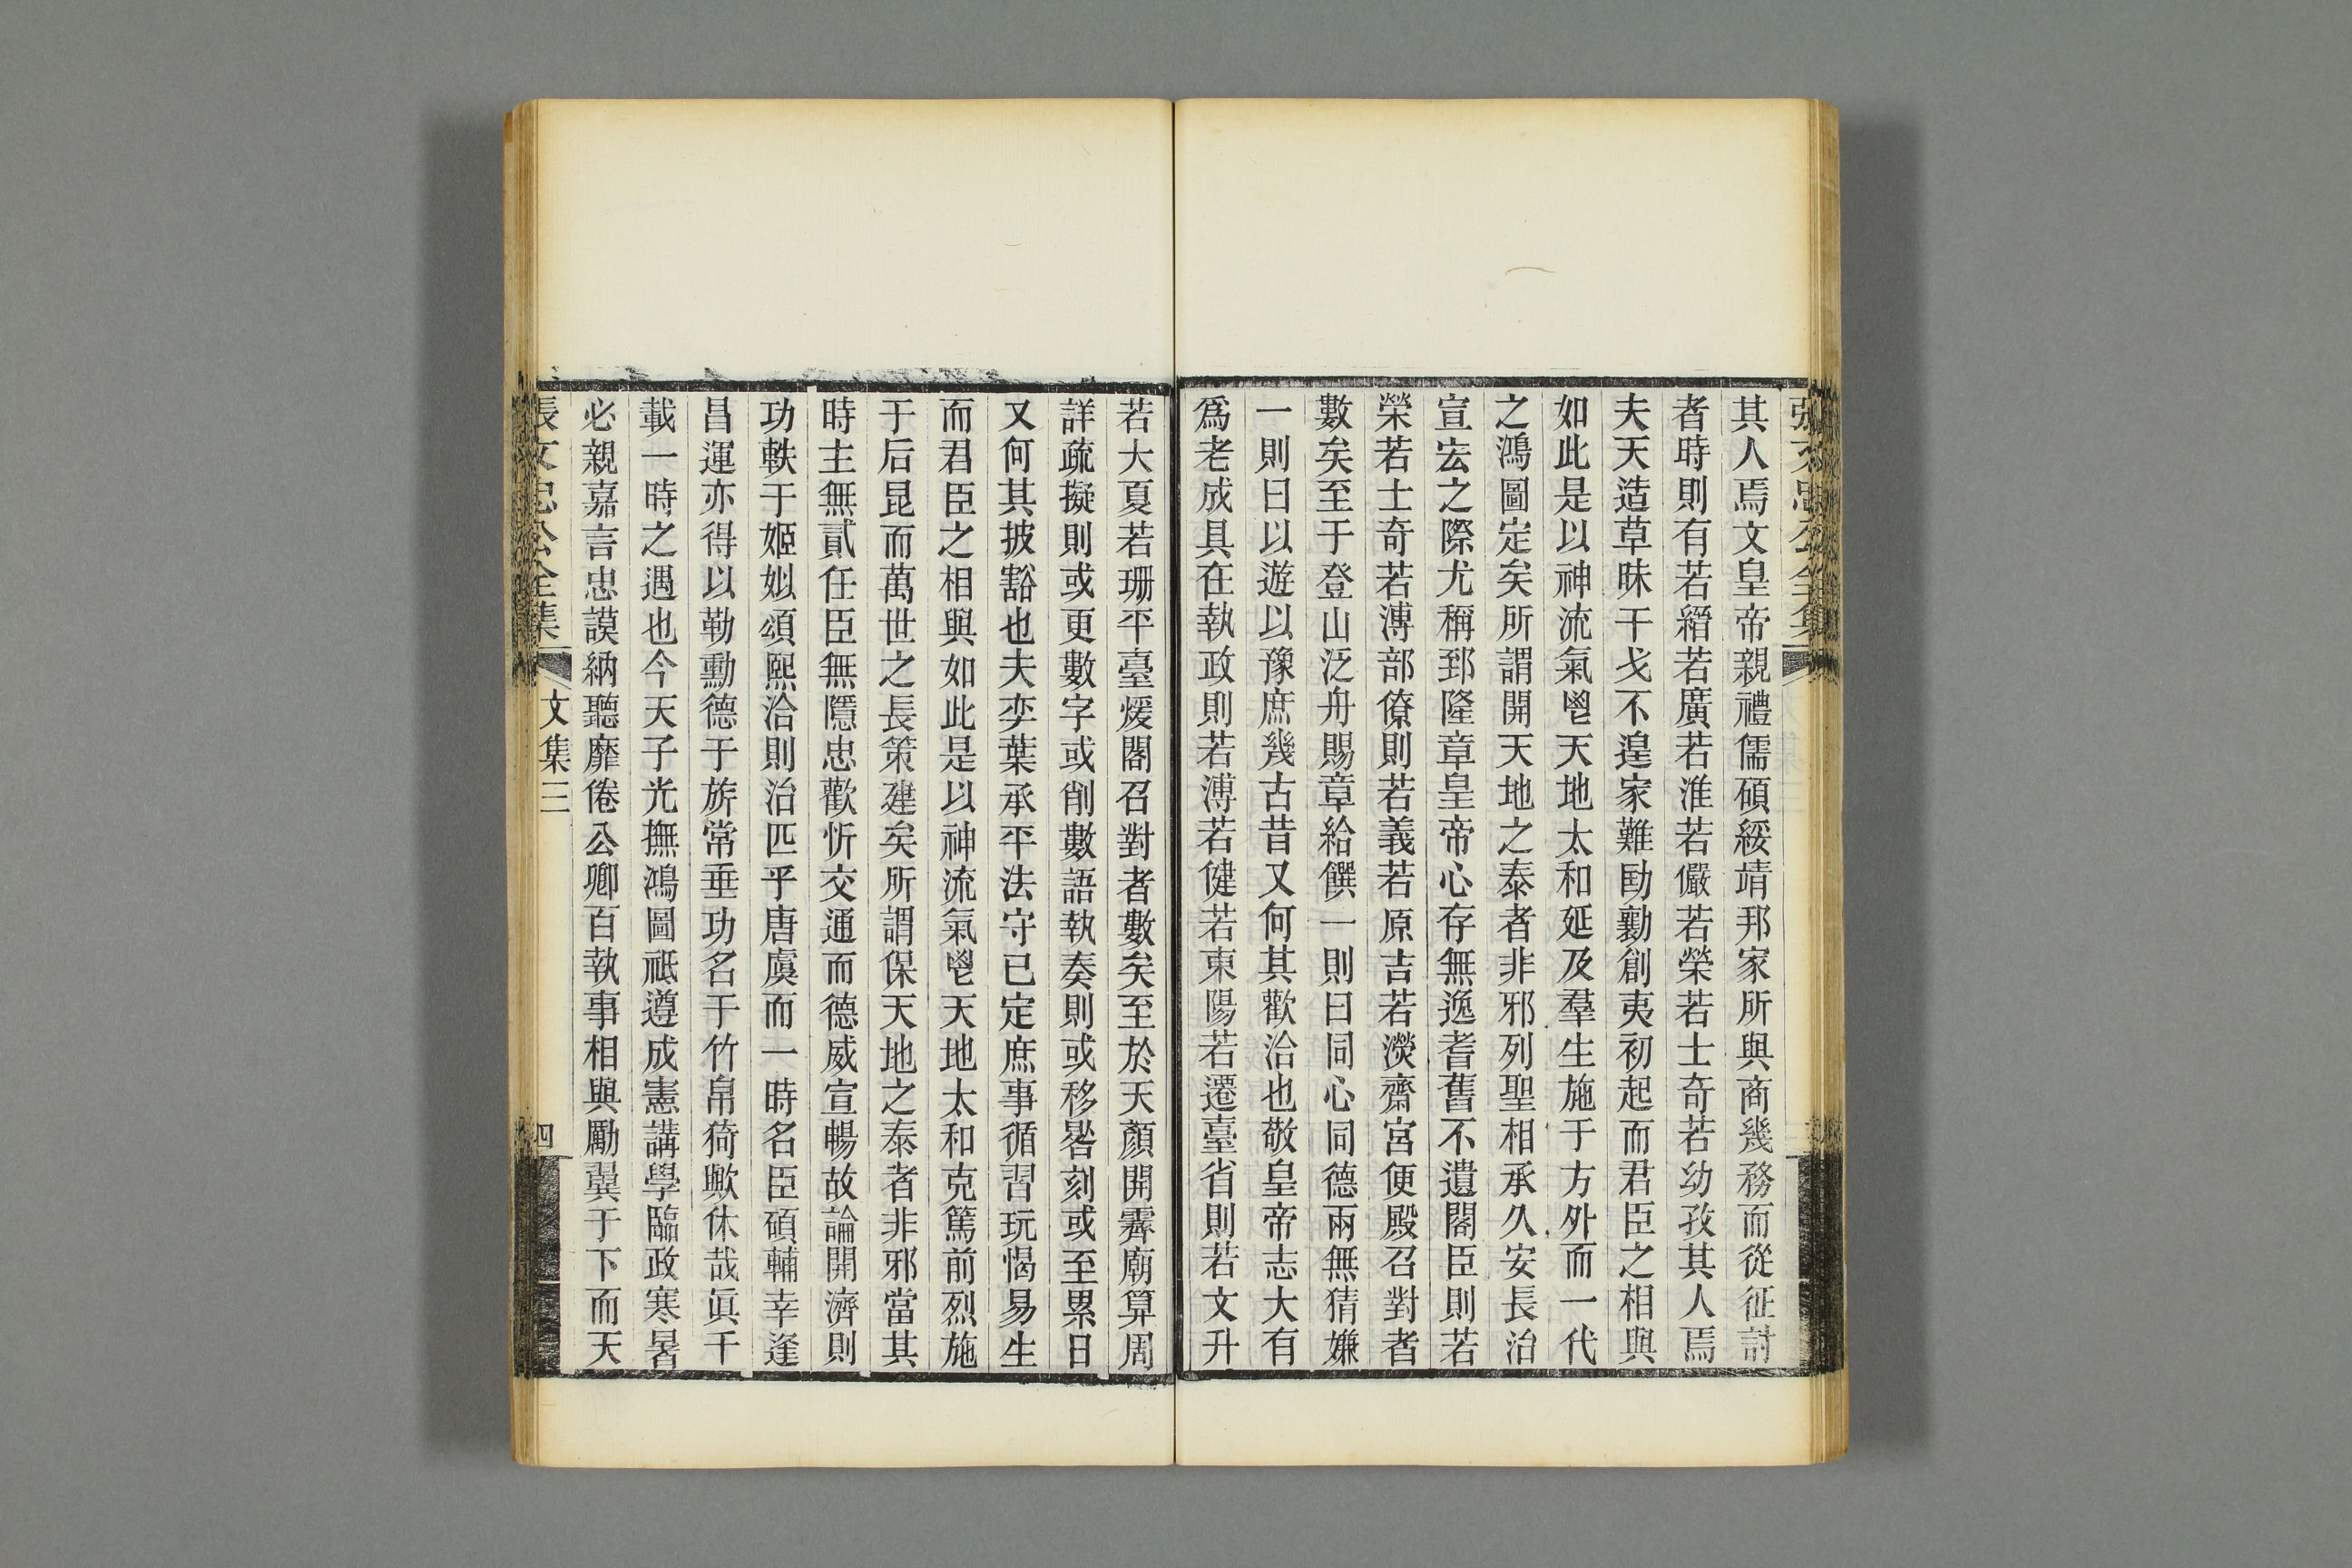 其人焉文皇帝親禮儒碩綏靖邦家所與商幾務而從征討
者時則有若縉若廣若淮若儼若榮若士奇若幼孜其人焉
夫天造草昧干戈不遑家難劻勷創夷初起而君臣之相與
如此是以神流氣鬯天地太和延及羣生施于方外而一代
之鴻圖定矣所謂開天地之泰者非邪列聖相承久安長治
宣宏之際尤稱郅隆章皇帝心存無逸耆舊不遺閣臣則若
榮若士奇若溥部僚則若義若原吉若濙齋宮便殿召對者
數矣至于登山泛舟賜章給饌一則曰同心同德兩無猜嫌
一則曰以遊以豫庶幾古昔又何其歡洽也敬皇帝志大有
爲老成具在執政則若溥若健若東陽若遷臺省則若文升
若大夏若珊平臺煖閣召對者數矣至於天顏開霽廟算周
詳疏擬則或更數字或削數語執奏則或移晷刻或至累日
又何其披豁也夫奕葉承平法守已定庶事循習玩愒易生
而君臣之相與如此是以神流氣鬯天地太和克篤前烈施
于后昆而萬世之長策建矣所謂保天地之泰者非邪當其
時主無貳任臣無隱忠歡忻交通而德威宣暢故論開濟則
功軼于姬姒頌熙洽則治匹乎唐虞而一時名臣碩輔幸逢
昌運亦得以勒勳德于旂常垂功名于竹帛猗歟休哉眞千
載一時之遇也今天子光撫鴻圖祗遵成憲講學臨政寒暑
必親嘉言忠謨納聽靡倦公卿百執事相與勵翼于下而天
張文忠公全集 文集三 四